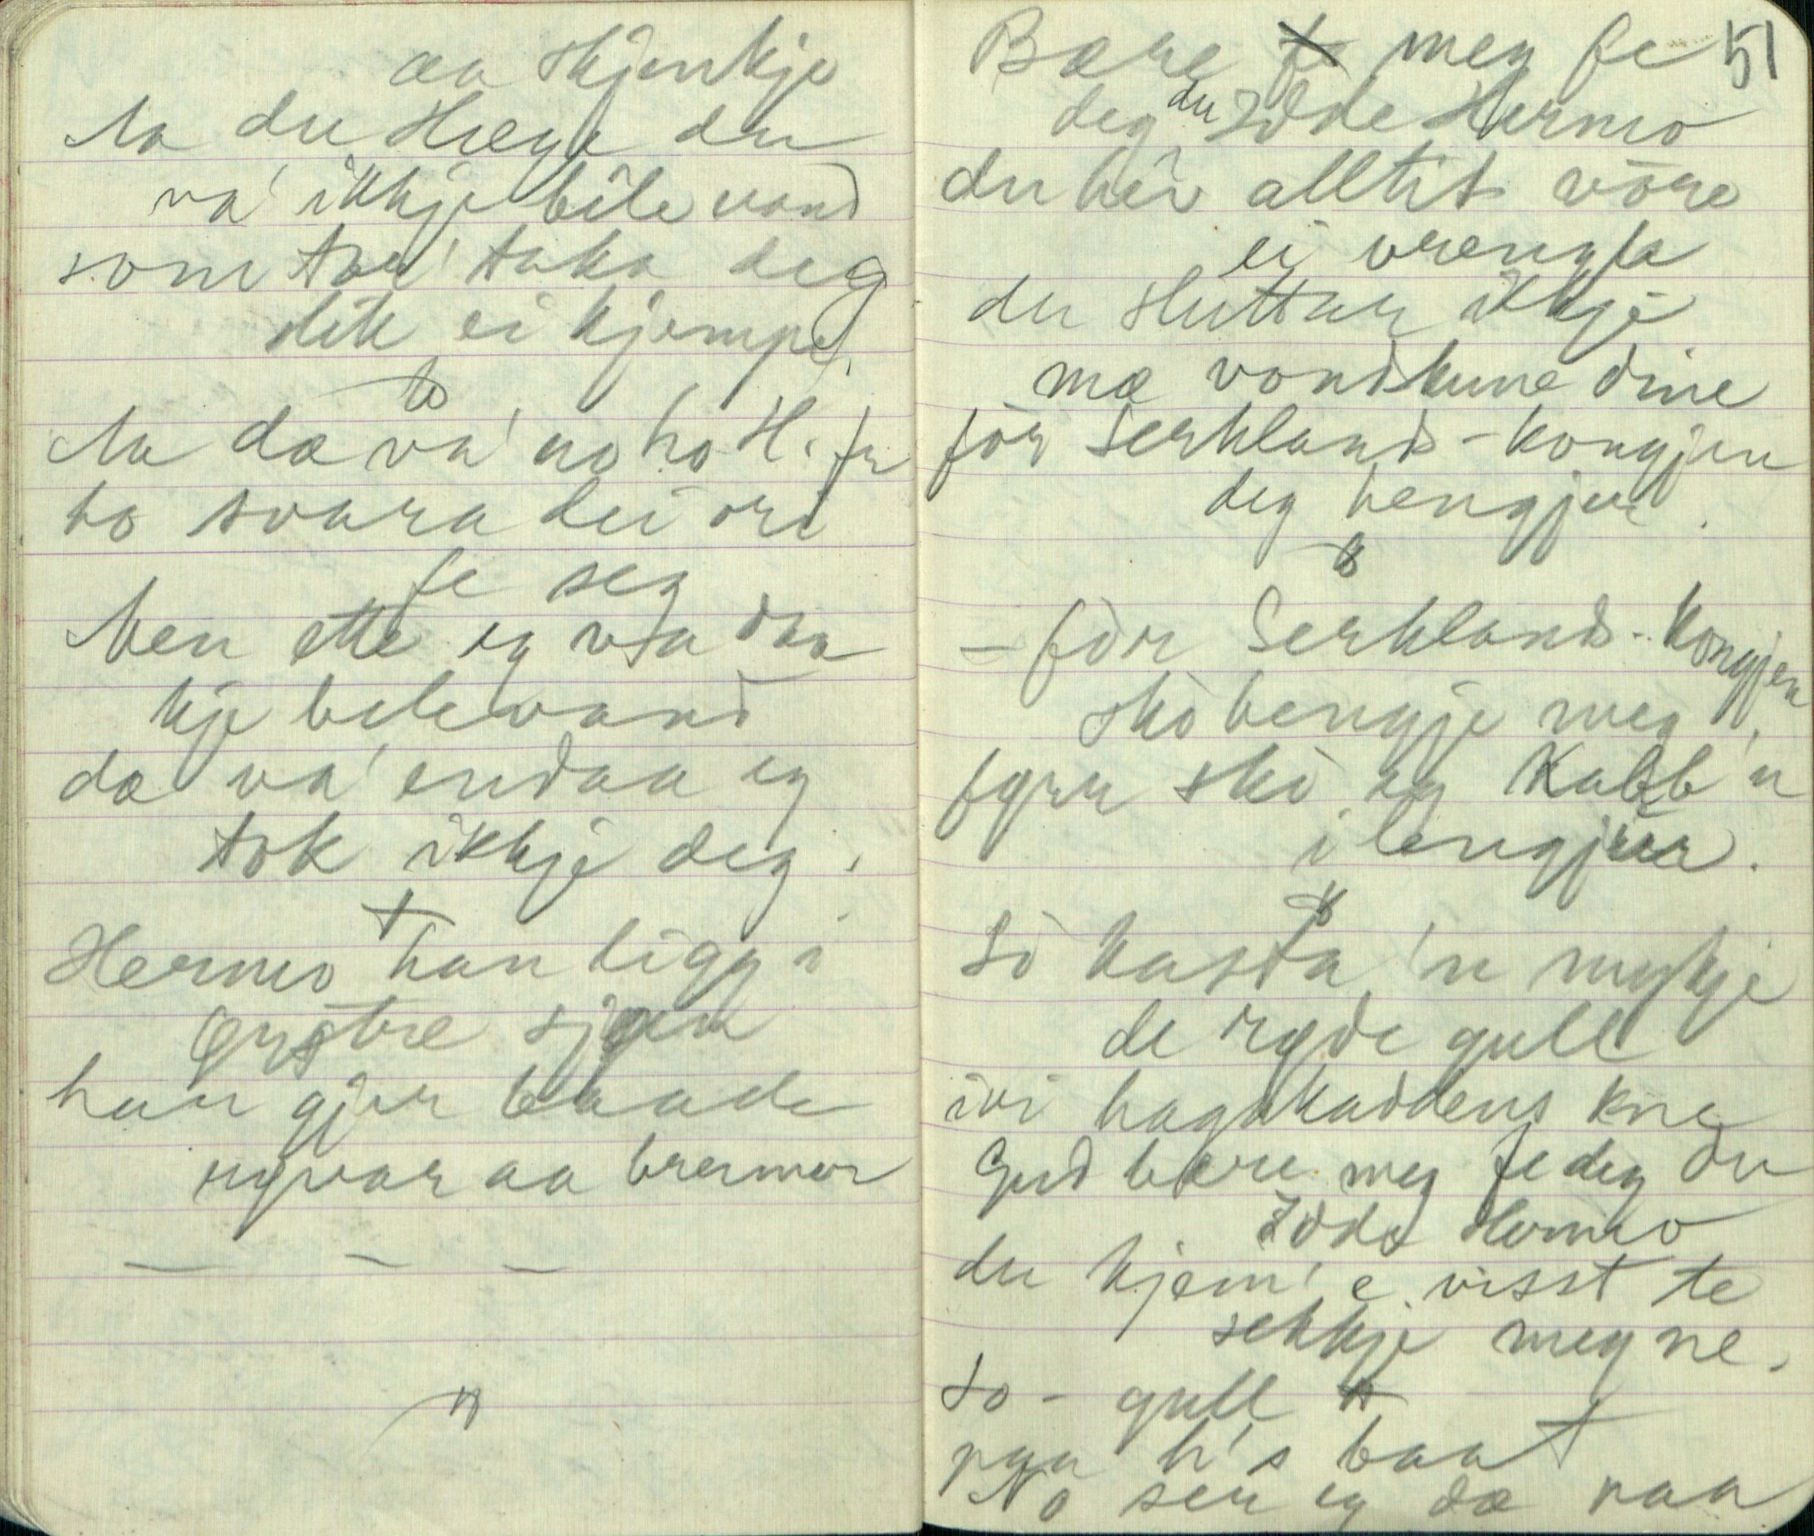 aa skjenkje
Aa du Hæge du
va' ikkje bile vand
som tor' taka deg
slik ei kjempe.
Aa dæ va' no ho H. fr
ho svara dei ord
fe seg
Men ette eg va daa
kje bilevand
dæ va' endaa eg
tok ikkje deg.
Hermo han ligg i
øystre sjøen
han gjer baade
og brenner
Bære meg fe
deg du Idde Hermo
du hev alltit vore
ei vrengja
du sluttar ikkje
mæ vondskune dine
för Serkland-kongjen
deg hengjer.
51
– för Serklands-kongjen
sko hengje meg,
fyrr sko eg kabb'n
i lengjur.
So kasta 'n mykje
de røde gull
ivi hagskaddens kne
Gud bære meg fe deg du
Idde Hermo
du kjem' e visst te
sekkje meg ne.
So – gull
paa h's baat
No ser eg dæ paa